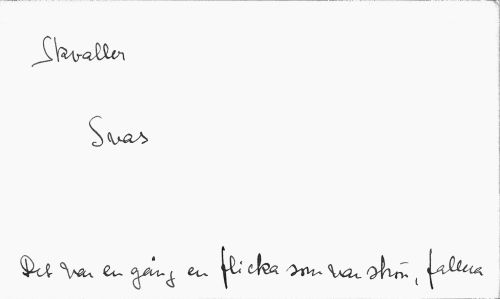 Skvaller
Svas
Det var en gång en flicka som var skön, fallera